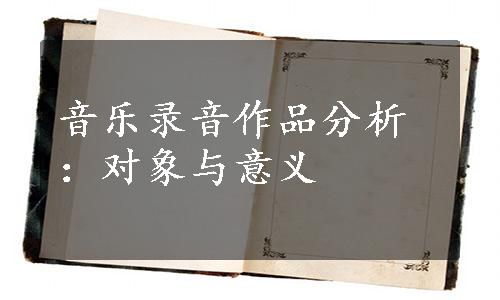 音乐录音作品分析
：对象与意义